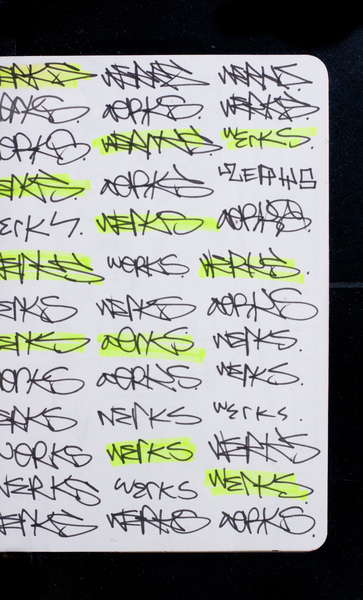 WERKS WERKS WERKS.
WORKS. WORKS. WERKS.
WORKS. WERKS WERKS.
WERKS. WORKS
WERKS. WERKS WORKS.
WERKS WORKS WERKS.
WERKS WERKS WORKS
WERKS WORKS WERKS.
WORKS WORKS WERKS.
WERKS WERKS WERKS.
WORKS WERKS WERKS
WERKS WERKS WERKS.
WERKS WERKS WORKS.